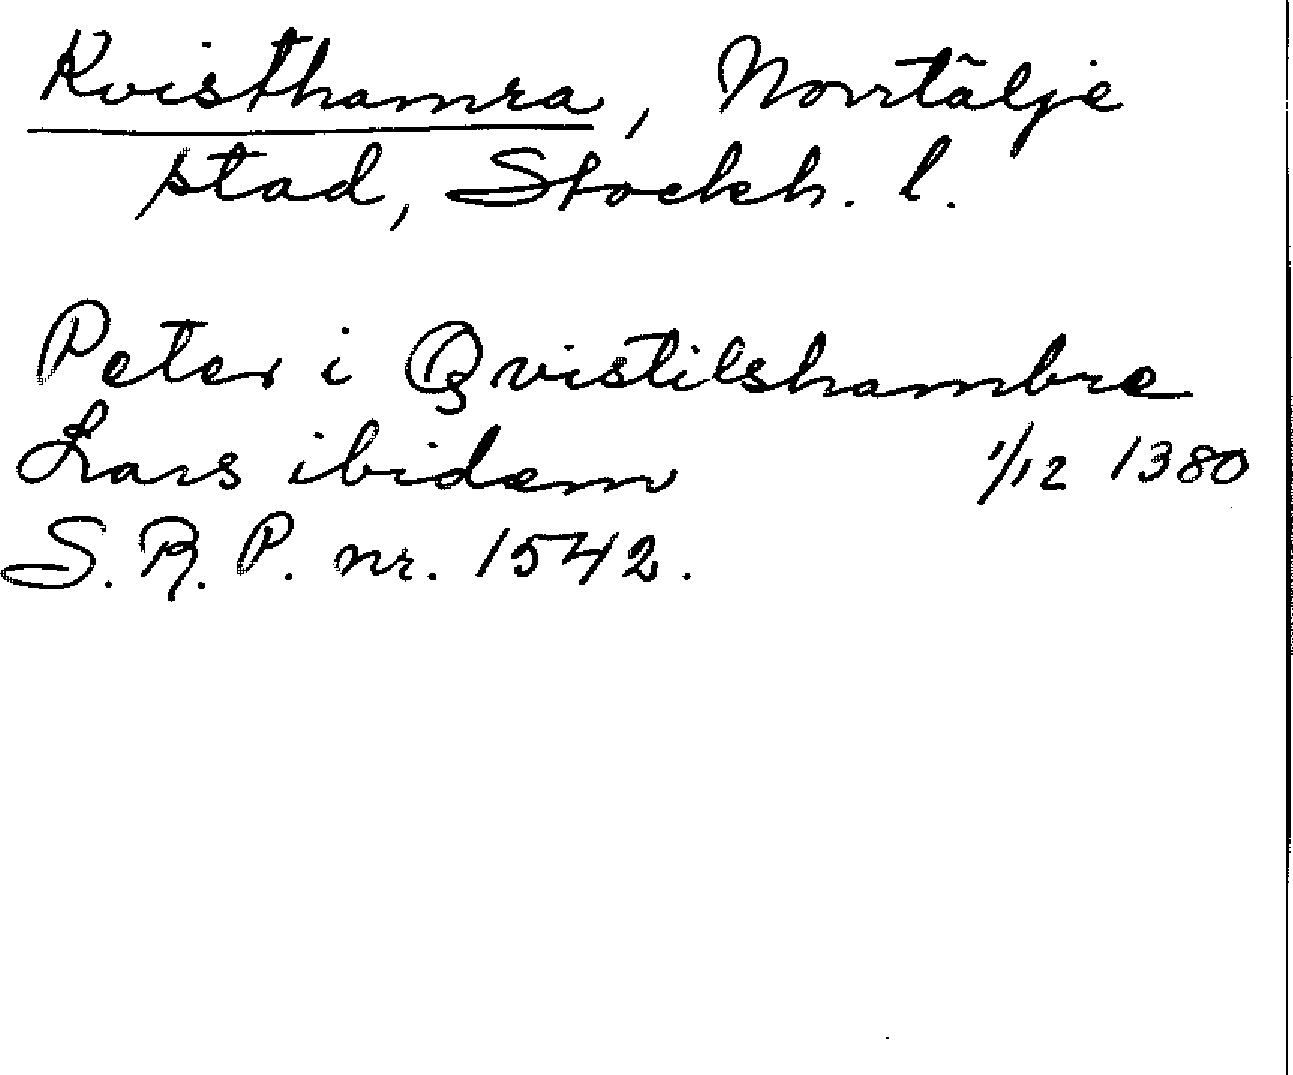 Kvisthamra, Norrtälje
stad, Stockh. l.
Peter i Qvistilshambre
Lars ibidem 1/12 1380
S. R. P. nr. 1542.